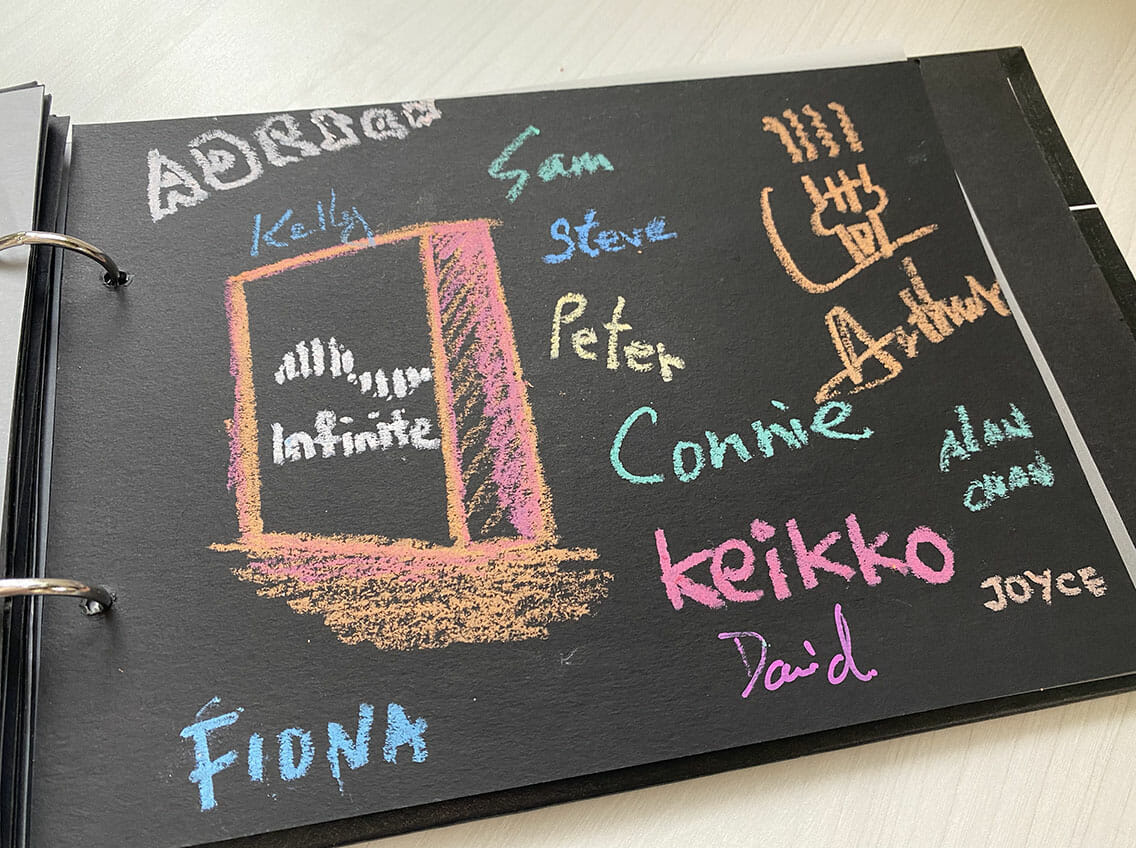 Sam
Kelly
Steve
Peter
Arthur
Infinite
Connie
Alan
Chan
Keikko
JOYCE
David.
FIONA